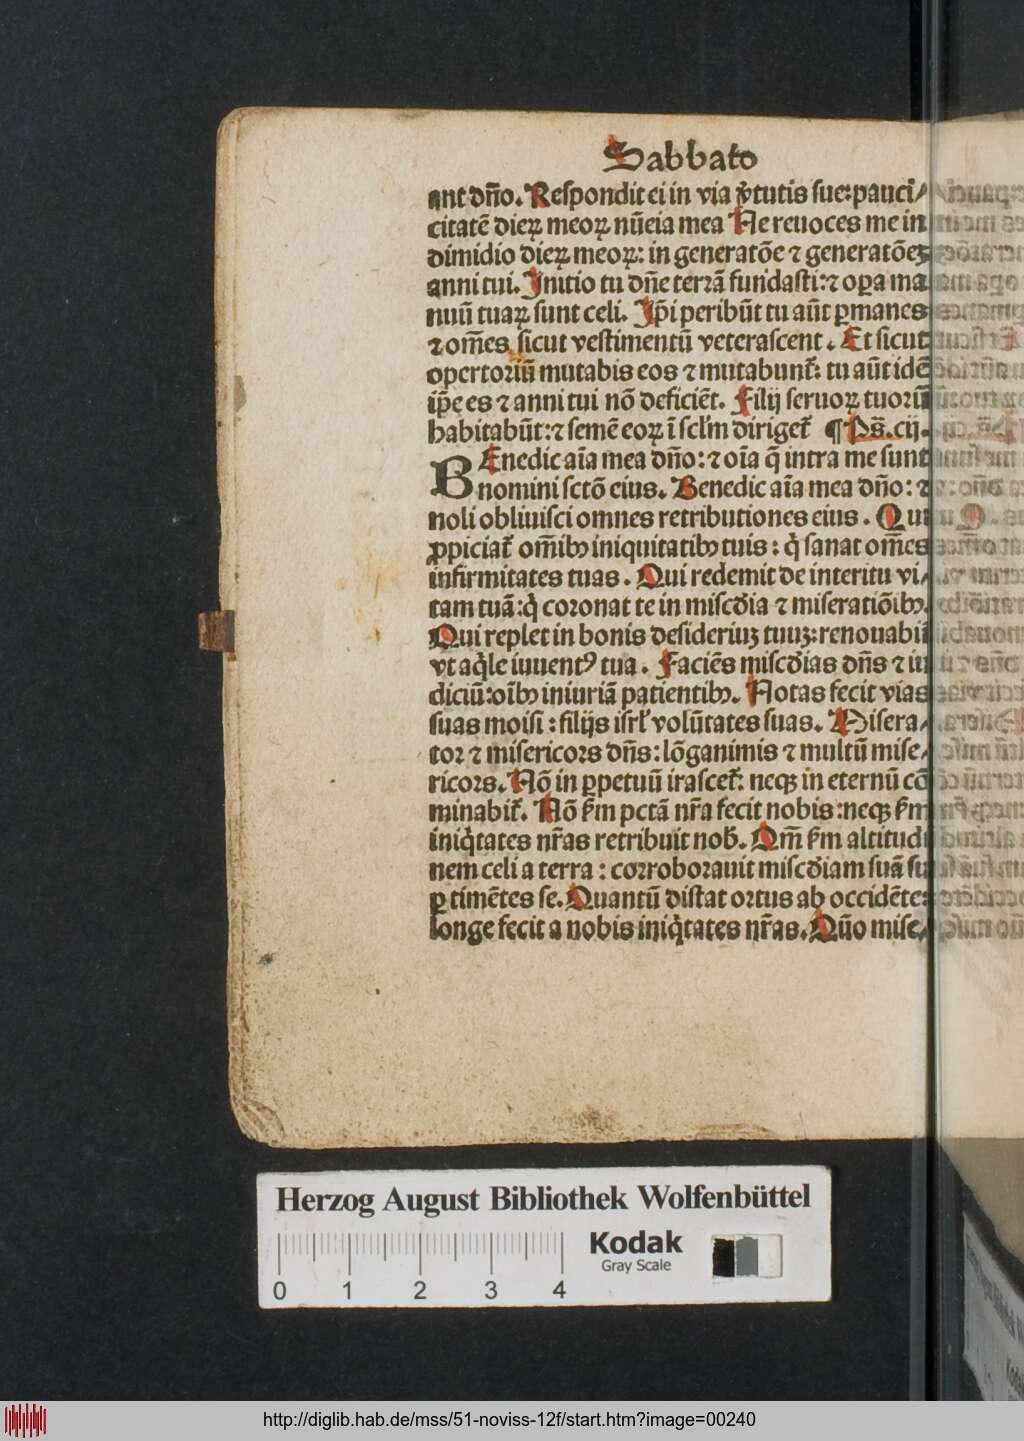 Sabbato
ant dn̄o. Respondit ei in via v̓tutis sue: pauci⸗
citatē dieꝝ meoꝝ nūcia mea Ne reuoces me in
dimidio dieꝝ meoꝝ: in generatōe ⁊ generatōeꝫ
anni tui. Initio tu dn̄e terrā fundasti: ⁊ oꝑa ma
nuū tuaꝝ sunt celi. Ip̄i peribūt tu aūt ꝑmanes
⁊ om̄es sicut vestimentū veterascent. Et sicut
opertoriū mutabis eos ⁊ mutabunt᷑: tu aūt idē
ip̄e es ⁊ anni tui nō deficiēt. Filij seruoꝝ tuoꝝ
habitabūt: ⁊ semē eoꝝ ī scl̓m diriget᷑ ¶ Ps̄. cij.
BEnedic aīa mea dn̄o: ⁊ oīa q̄ intra me sunt
nomini sctō eius. Benedic aīa mea dn̄o: ⁊
noli obliuisci omnes retributiones eius. Qui
ꝓpiciat᷑ om̄ibꝰ iniquitatibꝰ tuis: q̇ sanat om̄es
infirmitates tuas. Qui redemit de interitu vi⸗
tam tuā: q̇ coronat te in misc̄dia ⁊ miseratiōibꝰ.
Qui replet in bonis desideriuꝫ tuuꝫ: renouabit᷑
vt aq̇le iuuentꝰ tua. Faciēs misc̄dias dn̄s ⁊ iu
diciū: oībꝰ iniuriā patientibꝰ. Notas fecit vias
suas moisi: filijs isrl̓ volūtates suas. Misera⸗
tor ⁊ misericors dn̄s: lōganimis ⁊ multū mise⸗
ricors. Nō in ꝑpetuū irascet᷑: neqꝫ in eternū cō
minabit᷑. Nō ẜm pctā nr̄a fecit nobis: neqꝫ ẜm
iniq̇tates nr̄as retribuit nob̓. Qm̄ ẜm altitudi
nem celi a terra: corroborauit misc̄diam suā su
ꝑ timētes se. Quantū distat ortus ab occidēte:
longe fecit a nobis iniq̇tates nr̄as. Quō mise⸗
Herzog August Bibliothek Wolfenbüttel
Kodak
Gray Scale
0 1 2 3 4
http://diglib.hab.de/mss/51-noviss-12f/start.htm?image=00240